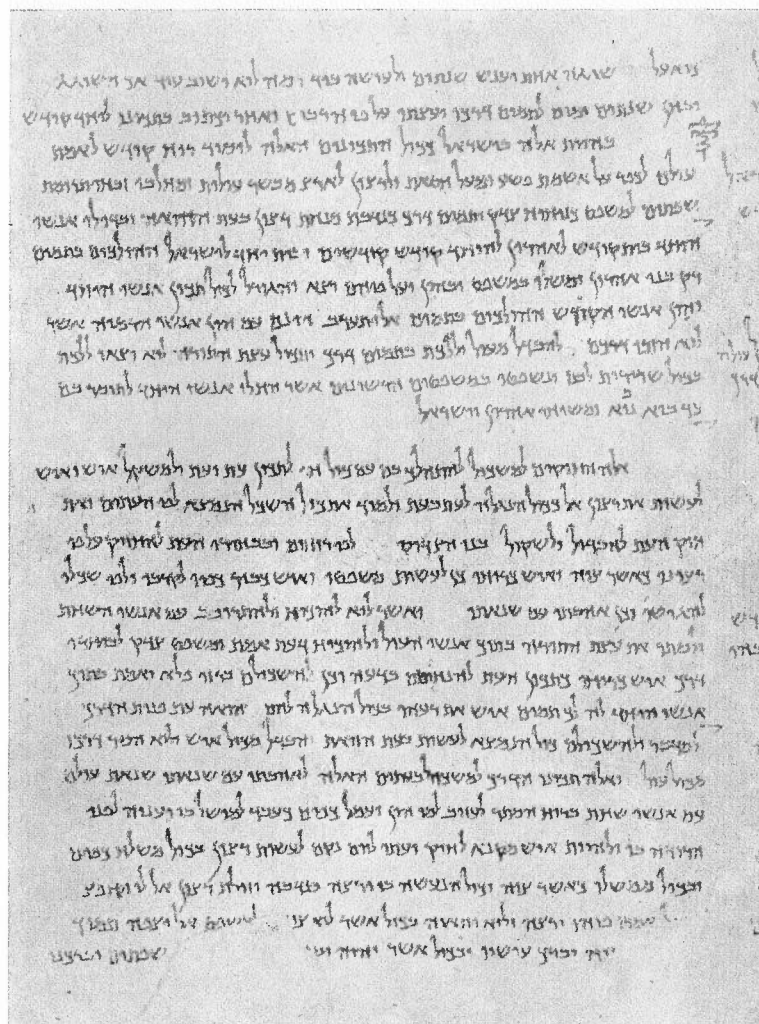 כיא על שגגה אחת יענש שנתים ולעושה ביד רמה לוא ישוב עוד אך השוגג
יבחן שנתים ימים לתמים דרכו ועצתו על פי הרבים ואחר יכתוב בתכונו ליחד קודש
בהיות אלה בישראל ככול התכונים האלה ליסוד רוח קודש לאמת
עולם לכפר על אשמת פשע ומעל חטאת ולרצון לארץ מבשר עולות ומחלבי זבח ותרומת
שפתים למשפט כניחוח צדק ותמים דרך כנדבת מנחת רצון בעת ההיאה יבדילו אנשי
היחד בית קודש לאהרון להיחד קודש קודשים ובית יחד לישראל ההולכים בתמים
רק בני אהרון ימשלו במשפט ובהון ועל פיהם יצא הגורל לכול תכון אנשי היחד
והון אנשי הקודש ההולכים בתמים אל יתערב הונם עם הון אנשי הרמיה אשר
לוא הזכו דרכם להבדל מעול וללכת בתמים דרך ומכול עצת התורה לוא יצאו ללכת
בכול שרירות לבם ונשפטו במשפטים הרשונים אשר החלו אנשי היחד לתיסר בם
עד בוא נביא ומשיחי אהרון וישראל
אלה החוקים למשכיל להתהלך בם עם כול חי לתכון עת ועת ולמשקל איש ואיש
לעשות את רצון אל ככול הנגלה לעת בעת ולמוד את כול השכל הנמצא לפי העתים ואת
חוק העת להבדיל ולשקול בני הצדוק לפי רוחום ובבחירי העת להחזיק על פי
רצונו כאשר צוה ואיש כרוחו כן לעשות משפטו ואיש כבור כפיו לקרבו ולפי שכלו
להגישו וכן אהבתו עם שנאתו ואשר לוא להוכיח ולהתרובב עם אנשי השחת
ולסתר את עצת התורה בתוך אנשי העול ולהוכיח דעת אמת ומשפט צדק לבוחרי
דרך איש כרוחו כתכון העת להנחותם בדעה וכן להשכילם ברזי פלא ואמת בתוך
אנשי היחד להלך תמים איש את רעהו בכול הנגלה להם היאה עת פנות הדרך
למדבר ולהשכילם כול הנמצא לעשות בעת הזואת והבדל מכול איש ולוא הסר דרכו
מכול עול ואלה תכוני הדרך למשכיל בעתים האלה לאהבתו עם שנאתו שנאת עולם
עם אנשי שחת ברוח הסתר לעזוב למו הון ועמל כפים כעבד למושל בו וענוה לפני
הרודה בו ולהיות איש מקנא לחוק ועתו ליום נקם לעשות רצון בכול משלח כפים
ובכול ממשלו כאשר צוה וכול הנעשה בו ירצה בנדבה וזולת רצון אל לו יחפץ
פיהו ירצה ולוא יתאוה בכול אשר לוא למשפט אל יצפה תמיד
יברך עושיו ובכול אשר יהיה שפתים יברכנו